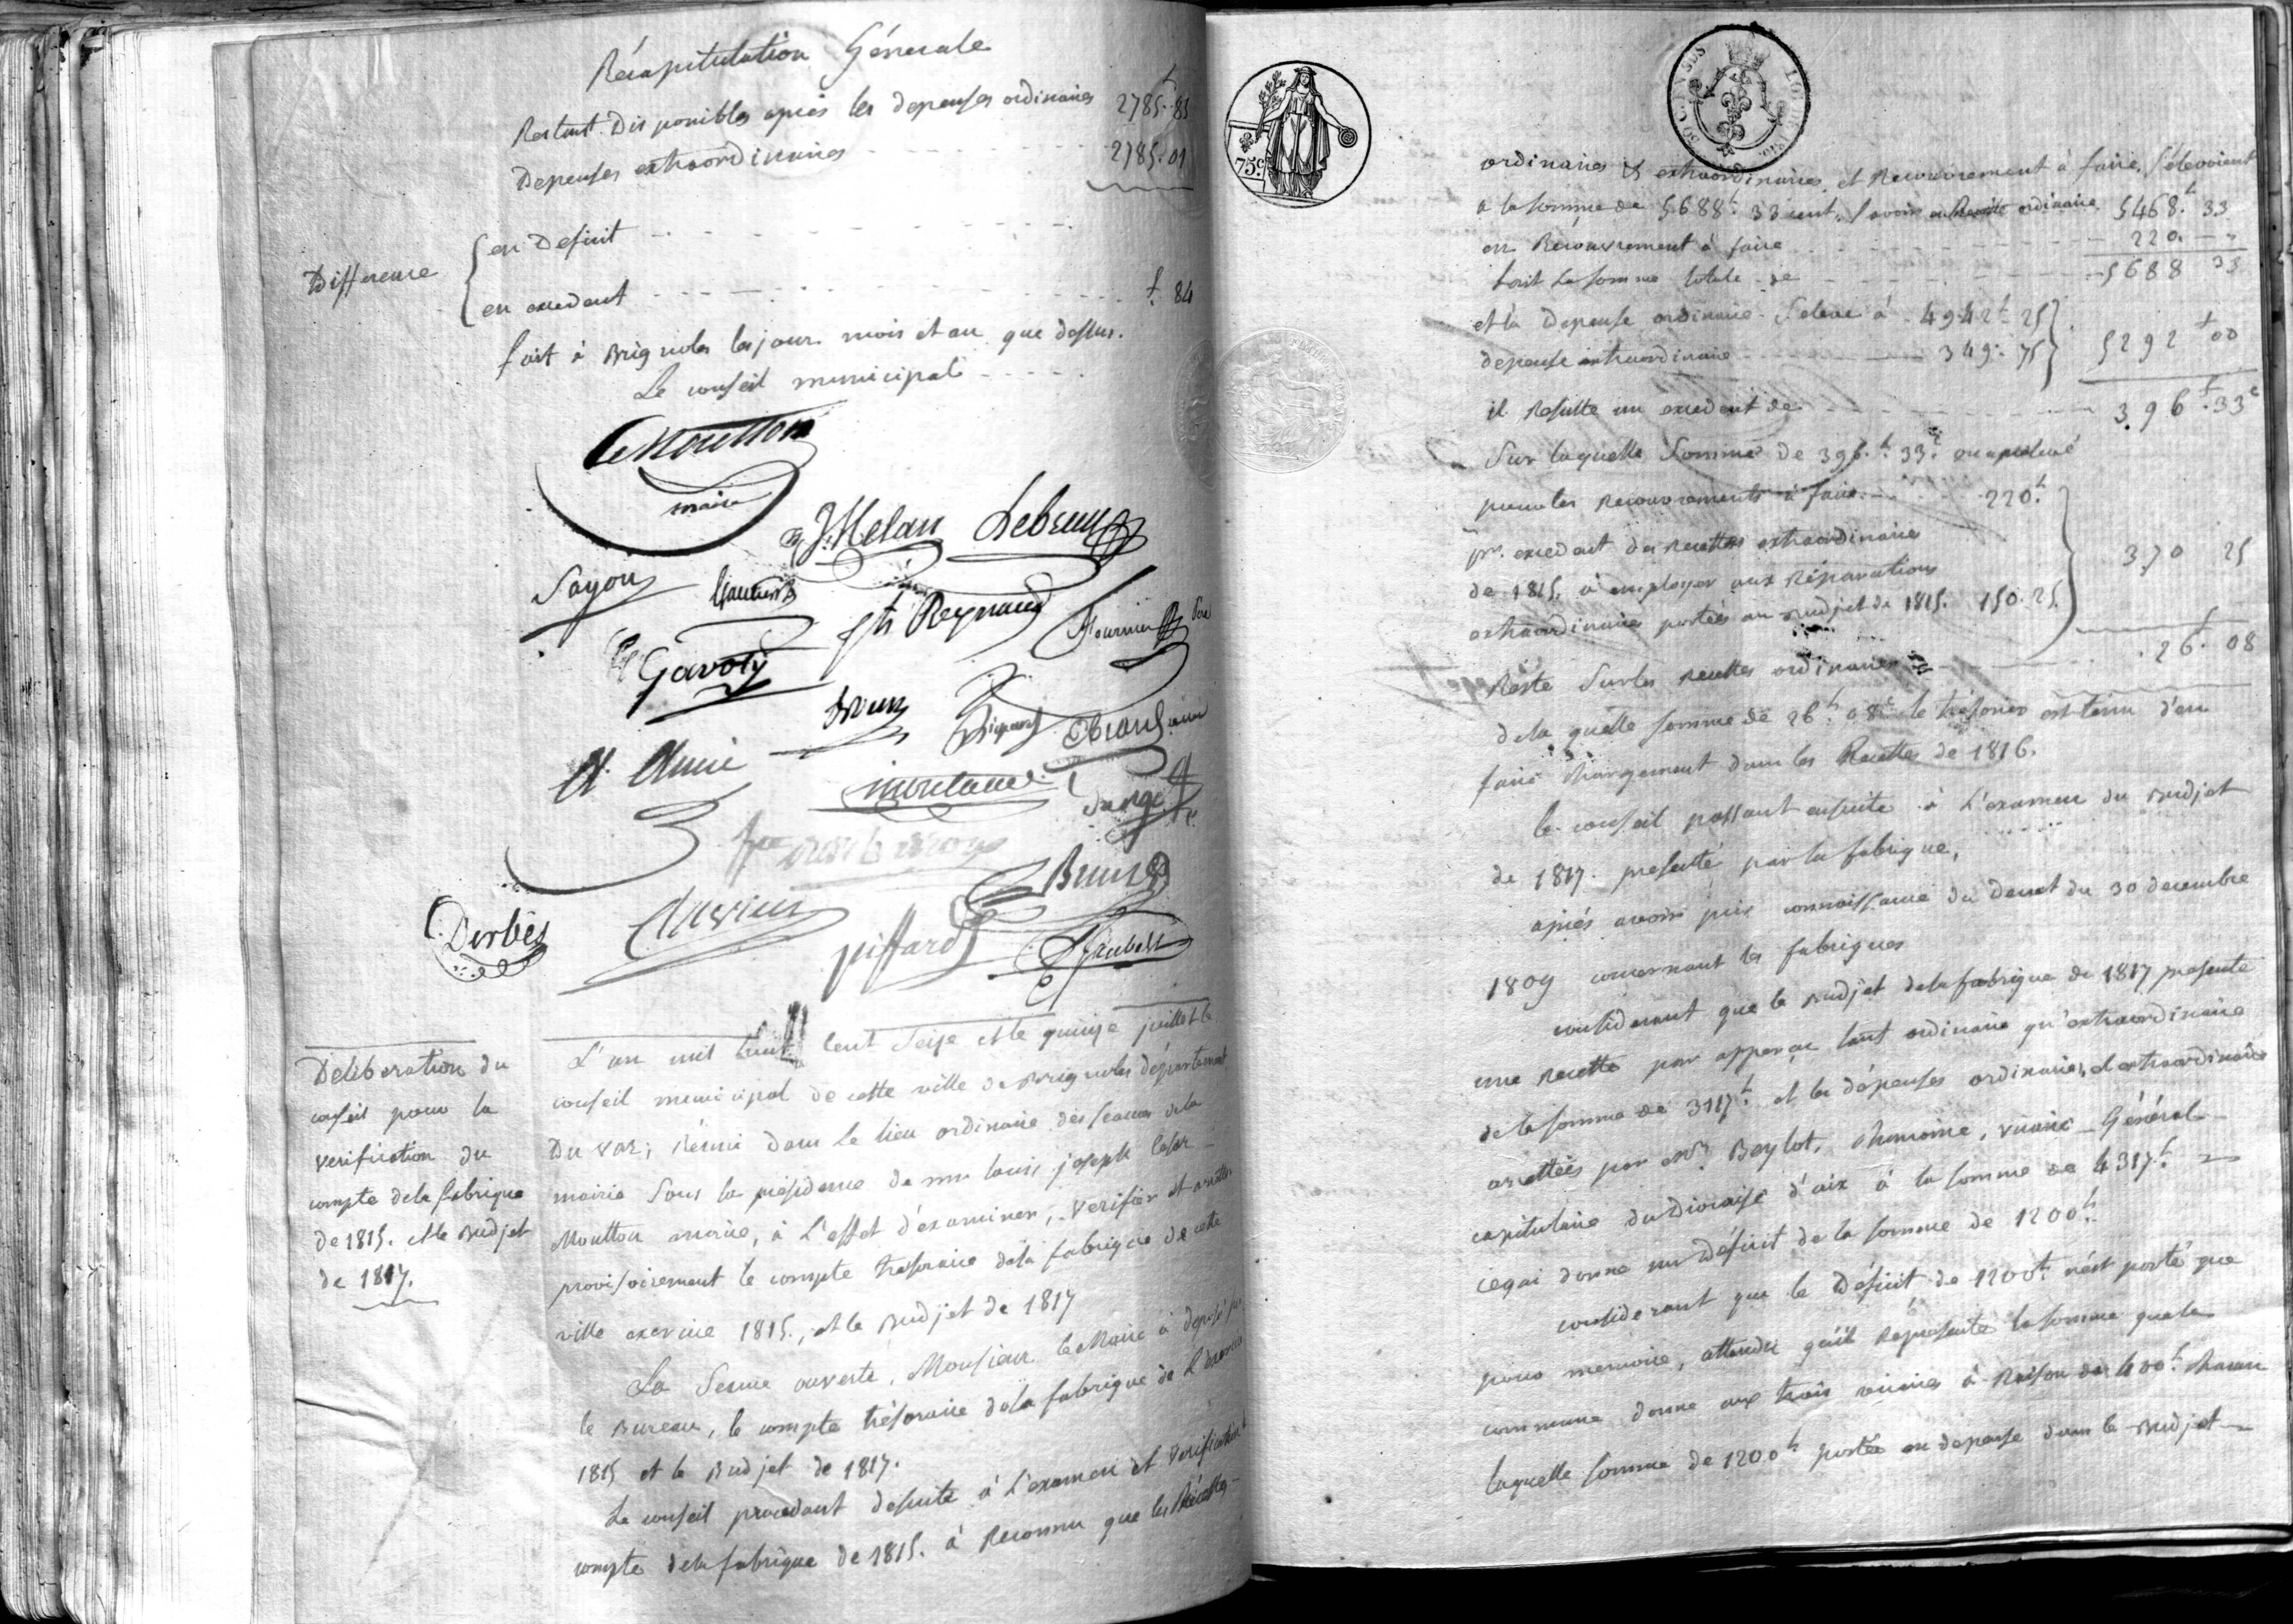 Récapitulation Générale
Restant Disponibles après les depenses ordinaires 2785 85
Depenses extraordinaires 2785. 01
Difference
en Deficit
en excedant f. 84
fait à Brignoles les jour mois et an que dessus.
Le conseil municipal
Moutton
maire
J. Melan Lebrun
Sayou
Reynaud Fournier
Gavoty
montaud
Brun
Derbès
piffard Jaubert
Deliberation du
conseil pour la
verification du
compte dela fabrique
de 1815. et le Budjet
de 1817.
L'an mil huit cent Seize et le quinze juillet le
conseil municipal de cette ville de Brignoles département
Du var; Réuni dans le lieu ordinaire des seances dela
mairie Sous la présidence de mr louis joseph Cesar
Moutton maire, à L'effet d'examiner, verifier et arretter
provisoirement le compte tresoraire dela fabrique de cette
ville exercice 1815., et le Budjet de 1817
La Seance ouverte, Monsieur le Maire à deposé sur
le Bureau, le compte trésoraire dela fabrique de L'exercice
1815 et le Budjet de 1817.
Le conseil procedant desuite à L'examen et verification
compte dela fabrique de 1815. à Reconnu que les Récettes
75.c
ordinaires & extraordinaires, et Recouvrement à faire, S'elevoient
a la somme de 5688f. 33 cent. Savoir en Recette ordinaire 5468. 33
en Recouvrement à faire 220. "
fait la somme totale de 5688 33
et la Depense ordinaire S'eleve à 4942f 25
depense extraordinaire 349. 75 5292f 00
il Resulte un excedent de 396f. 33c
Sur laquelle Somme de 396.f 33c on a prelevé
pour les Recouvrements à faire 220.f
pr. excedant des Recettes extraordinaires
de 1815. à employer aux Réparations 370 25
extraordinaires portées au Budjet de 1815. 150. 25.
Reste Sur les Recettes ordinaires 26f. 08
dela quelle somme de 26f. 08c le trésorier est tenu d'en
faire chargement dans les Recettes de 1816.
le conseil passant ensuite à L'examen du Budjet
de 1817. presenté par la fabrique,
après avoir pris connoissance du Decret du 30 decembre
1809 concernant les fabriques
considerant que le Budjet dela fabrique de 1817 presente
une Recette par apperçu tant ordinaire qu'extraordinaire
de la somme de 3117f. et les dépenses ordinaires, et extraordinaires
arrettées par Mr. Beylot, chanoine, vicaire Général
capitulaire du Diocaise d'aix à la somme de 4317f.
cequi donne un Déficit de la somme de 1200f.
considerant que le Déficit de 1200f. n'est porté que
pour memoire, attendu qu'il Represente la somme que la
commune donne aux trois vicaires à Raison de 400f. chacun
laquelle somme de 1200f portée en depense dans le Budjet